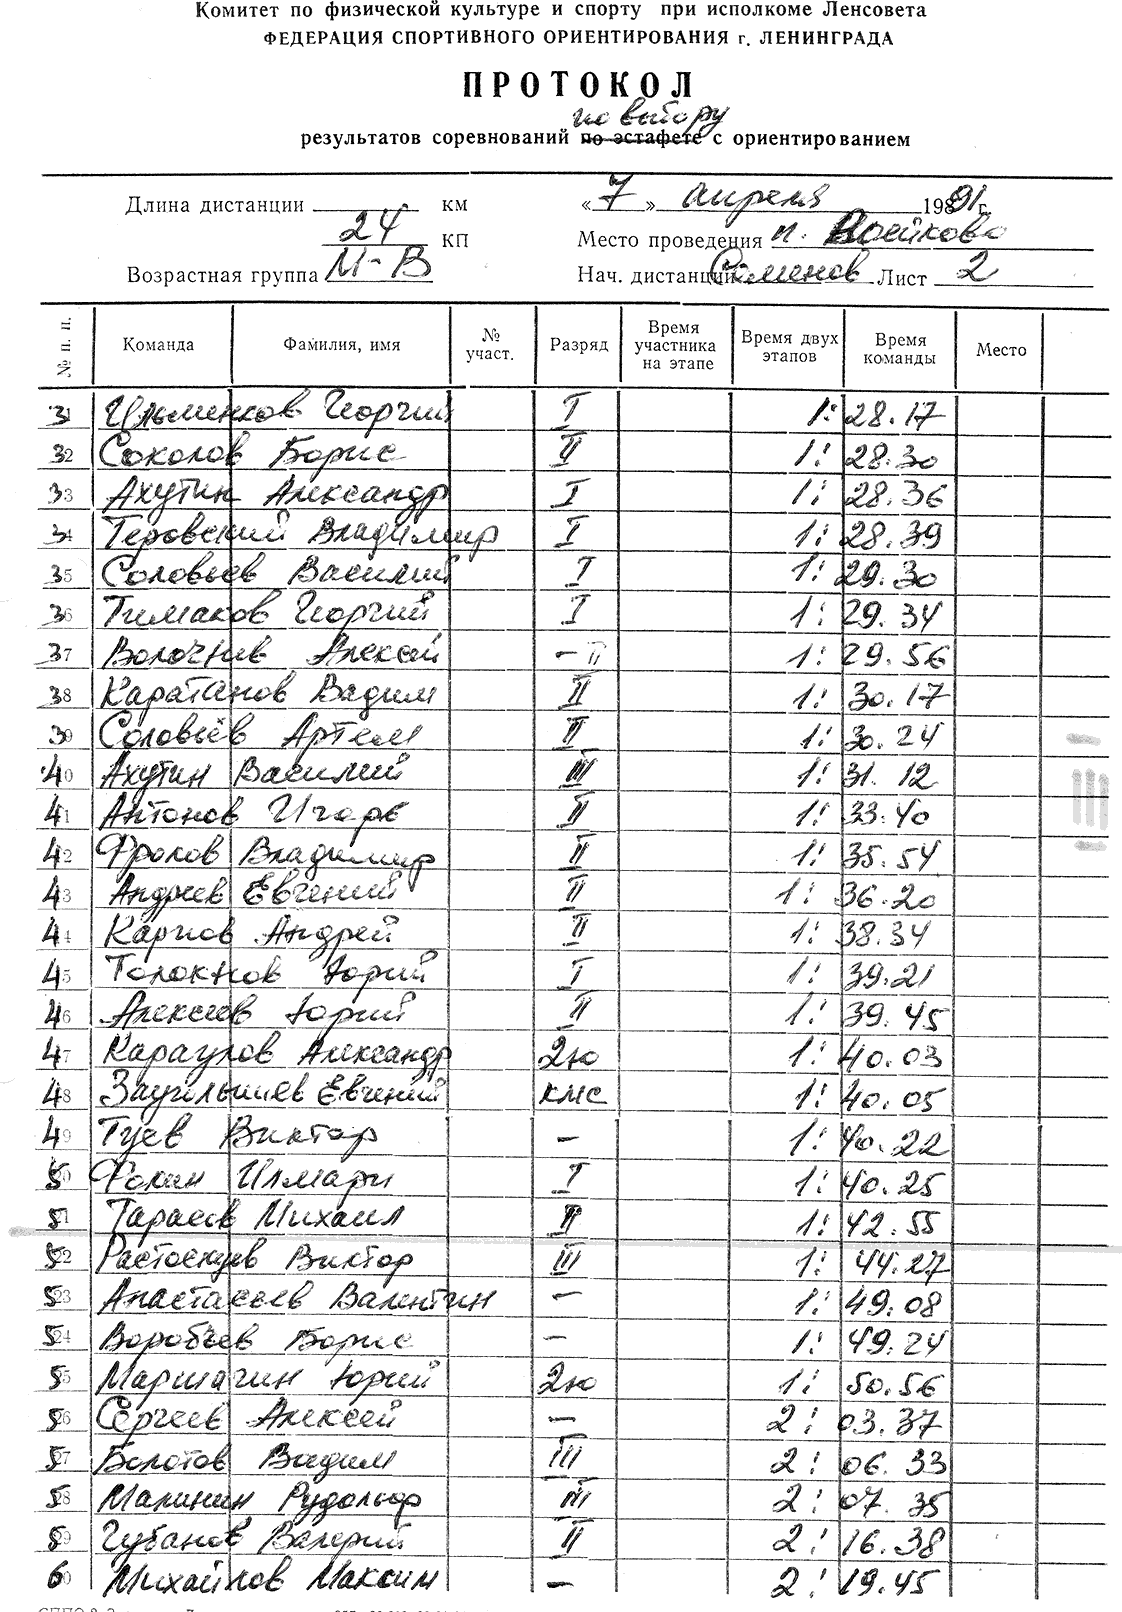 Комитет по физической культуре и спорту при исполкоме Ленсовета
ФЕДЕРАЦИЯ СПОРТИВНОГО ОРИЕНТИРОВАНИЯ г. ЛЕНИНГРАДА
ПРОТОКОЛ
по выбору
результатов соревнований по эстафете с ориентированием
Длина дистанции км «7» апреля 1991 г.
24 КП Место проведения п. Воейково
Возрастная группа М-В Нач. дистанции Семенов Лист 2
№ п. п. Команда Фамилия, имя № участ. Разряд Время участника на этапе Время двух этапов Время команды Место
31 Ильменков Георгий I 1: 28.17
32 Соколов Борис II 1: 28.30
33 Ахутин Александр I 1: 28.36
34 Теровский Владимир I 1: 28.39
35 Соловьев Василий I 1: 29.30
36 Тимаков Георгий I 1: 29.34
37 Алексей – II 1: 29.56
38 Каратанов Вадим II 1: 30.17
39 Соловьёв Артем II 1: 30.24
40 Ахутин Василий III 1: 31.12
41 Антонов Игорь II 1: 33.40
42 Фролов Владимир II 1: 35.54
43 Андреев Евгений II 1: 36.20
44 Карпов Андрей II 1: 38.34
45 Толокнов Юрий I 1: 39.21
46 Алексеев Юрий II 1: 39.45
47 Караулов Александр 2ю 1: 40.03
48 Евгений кмс 1: 40.05
49 Гуев Виктор – 1: 40.22
50 Фокин Илмари I 1: 40.25
51 Тарасов Михаил II 1: 42.55
52 Виктор III 1: 44.27
53 Анастасьев Валентин – 1: 49.08
54 Воробьев Борис – 1: 49.24
55 Маршагин Юрий 2ю 1: 50.56
56 Сергеев Алексей – 2: 03.37
57 Болотов Вадим III 2: 06.33
58 Малинин Рудольф III 2: 07.35
59 Губанов Валерий II 2: 16.38
60 Михайлов Максим – 2: 19.45